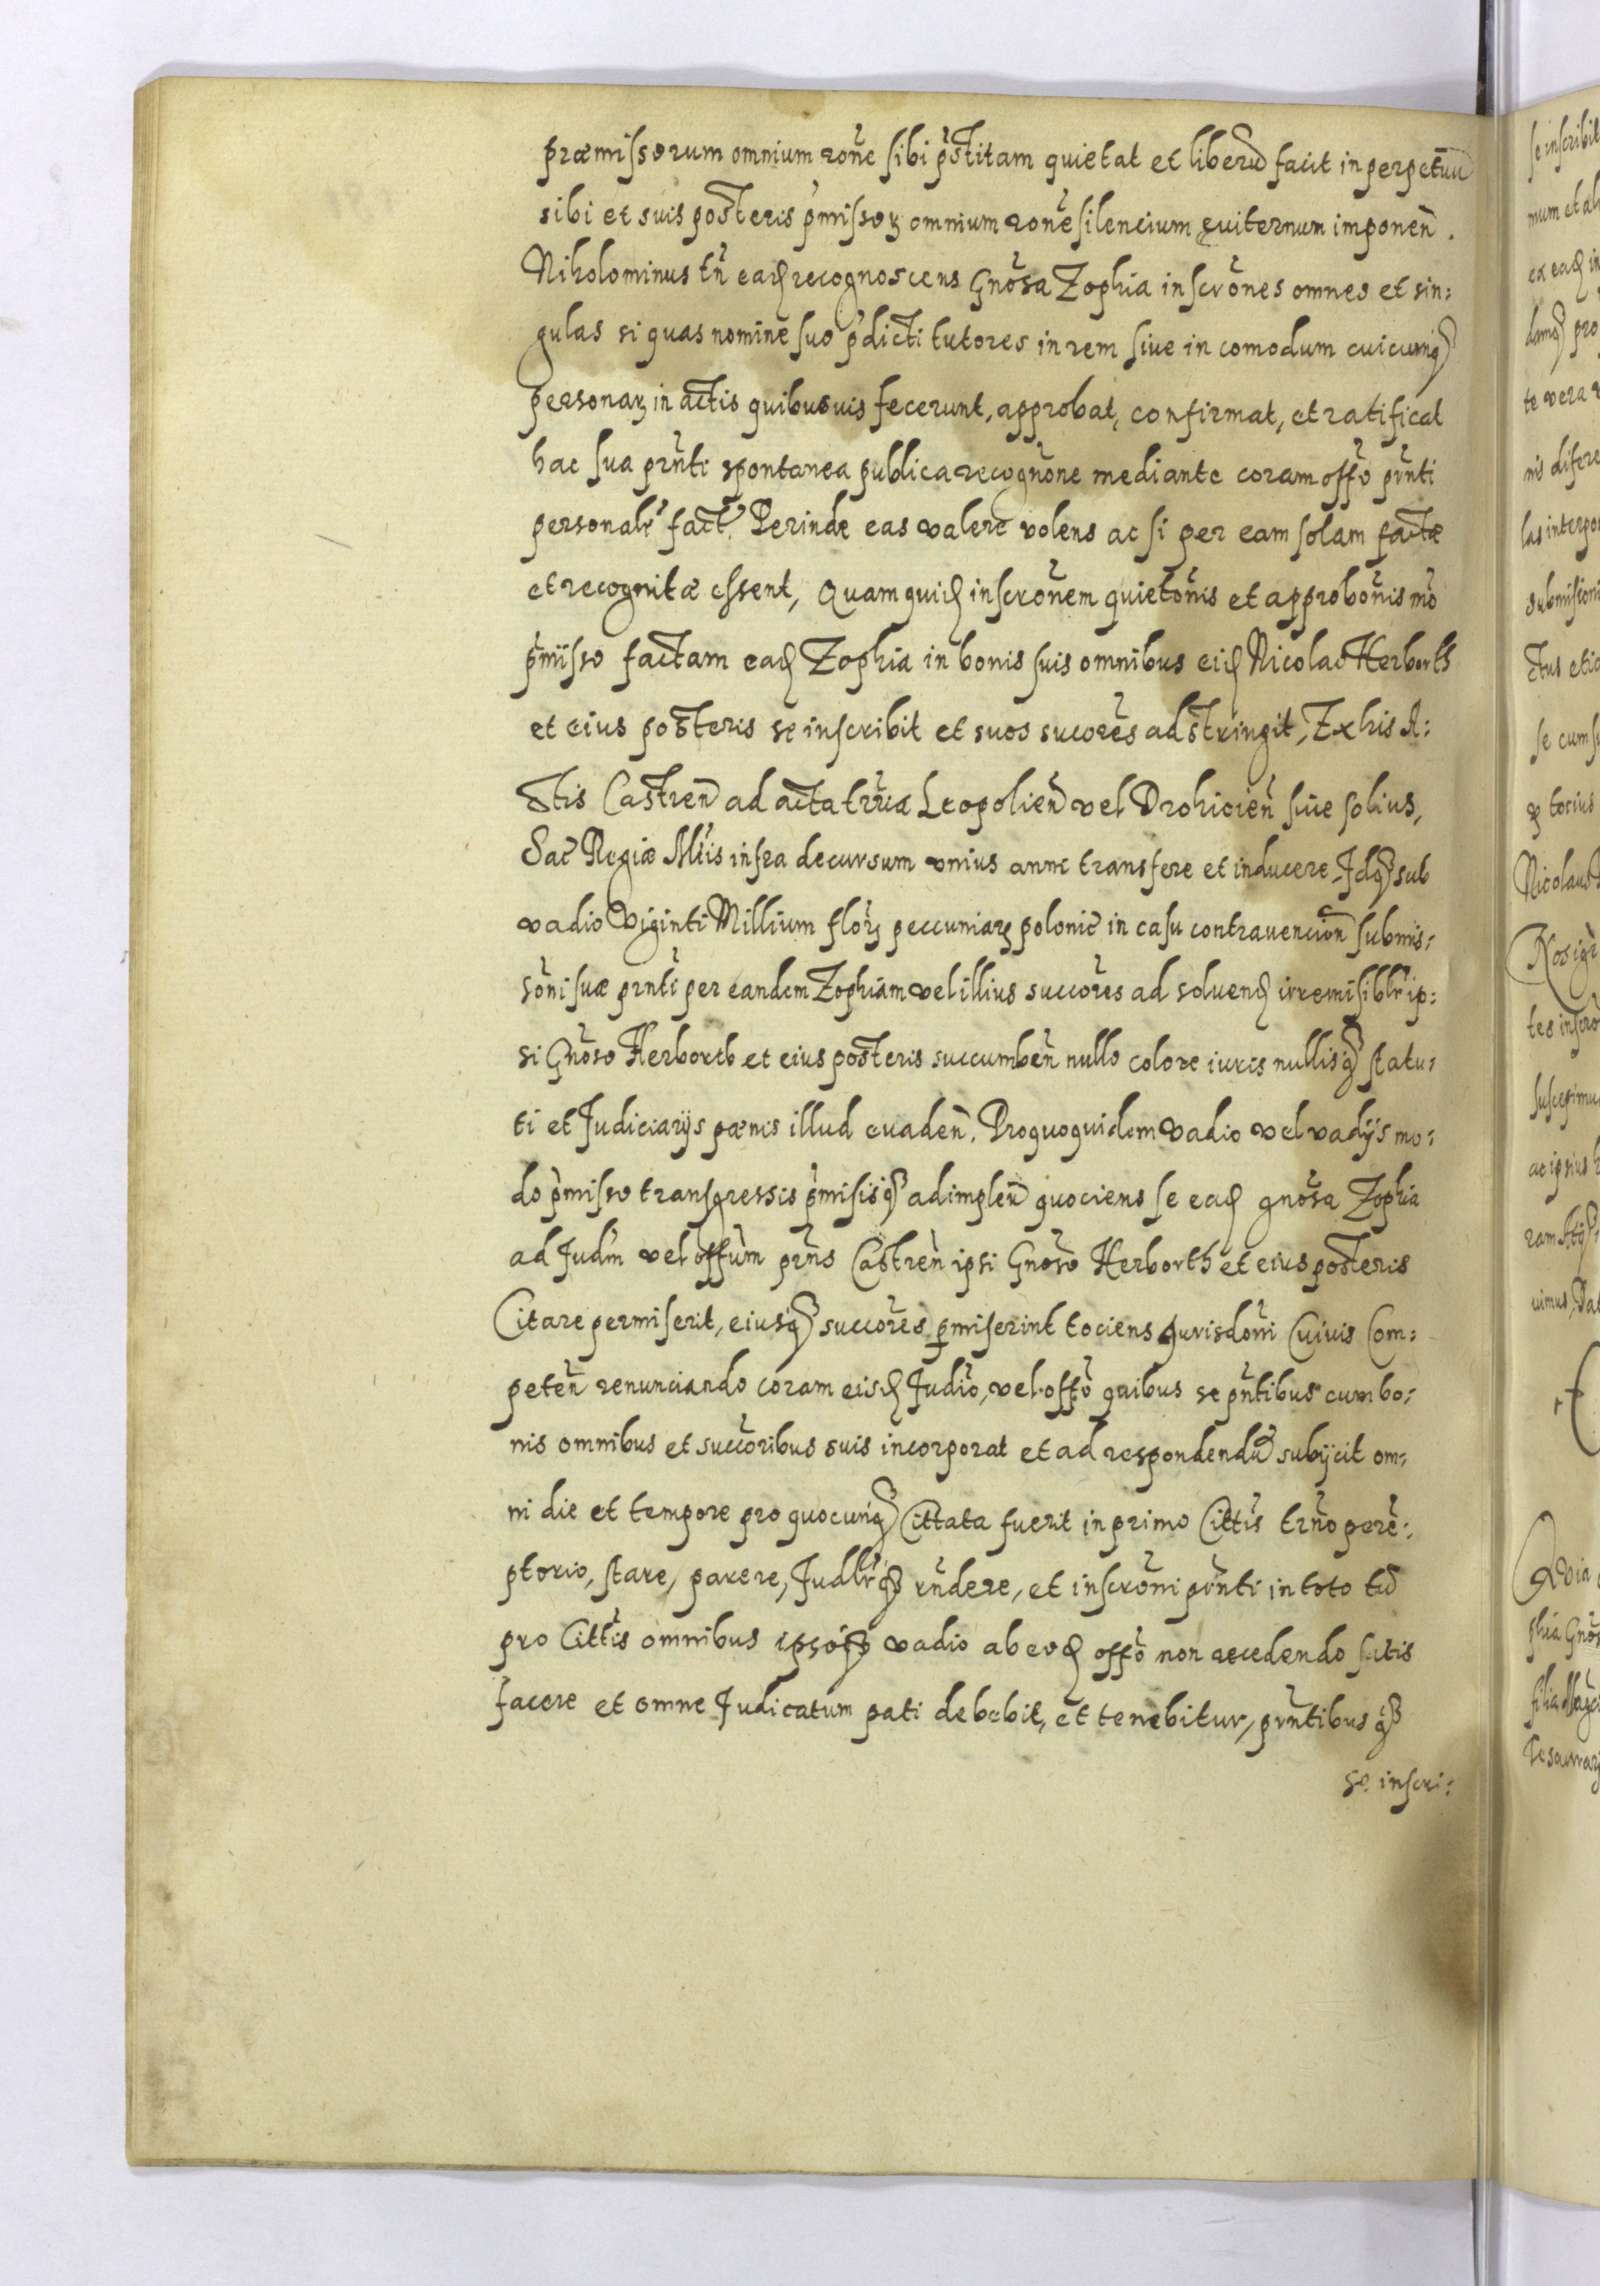 præmissorum omnium rõne sibi p̃stitam quietat et liberũ facit in perpetuũ
sibi et suis posteris p̃missoꝝ omnium rone silencium eviternum imponeñ.
Niholominus tñ eadꝫ recognoscens Gnõsa Zophia inscrõnes omnes et sin:
gulas si quas nomine suo p̃dicti tutores in rem siue in comodum cuicumqꝫ
personaꝝ in actis quibusuis fecerunt, approbat, confirmat, et ratificat
hac sua prñti spontanea publica recognõne mediante coram offõ prñti
personalr̃ fact̃. Perinde eas valere volens ac si per eam solam factæ
et recognitæ essent, Quamquidꝫ inscrõnem quietõnis et approbõnis mõ
p̃misso factam eadꝫ Zophia in bonis suis omnibus eidꝫ Nicolao Herborth
et eius posteris se inscribit et suos sucorẽs adstringit, Ex his A:
ctis Castreñ ad acta trr̃ia Leopolieñ vel Drohicieñ siue solius,
Sac̃ Regiæ Mt̃is infra decursum vnius anni transfere et inducere, Idqꝫ sub
vadio Viginti Millium floꝝ peccuniaꝝ polonic̃ in casu contravencioñ submis:
sõni suæ prñti per eandem Zophiam vel illius succorẽs ad solvendꝫ irremisiblr̃ ip:
si Gnõso Herborth et eius posteris succumbeñ nullo colore iuris nullisqꝫ statu:
ti et Judiciarijs pænis illud evadeñ. Proquoquidem vadio vel vadijs mo:
do p̃misso transgressis p̃misisqꝫ adimpleñ quociens se eadꝫ gnõsa Zophia
ad Judm̃ vel offũm prñs Castreñ ipsi Gnõso Herborth et eius posteris
Citare permiserit, eiusqꝫ succorẽs p̱miserint tociens Jurisdõni Cuivis Com:
peteñ renunciando coram eisdꝫ Judiõ, vel offõ quibus se pñtibus cum bo:
nis omnibus et succõribus suis incorporat et ad respondendũ subijcit om:
ni die et tempore pro quocunqꝫ Cittata fuerit in primo Citt̃is trño perẽ:
ptorio, stare, parere, Judlr̃qꝫ rñdere, et inscrõni prñti in toto tũ
pro Citt̃is omnibus ipsoqꝫ vadio ab eodꝫ offõ non recedendo satis
facere et omne Judicatum pati debebit, et tenebitur, prñtibus qꝫ
se inscri: